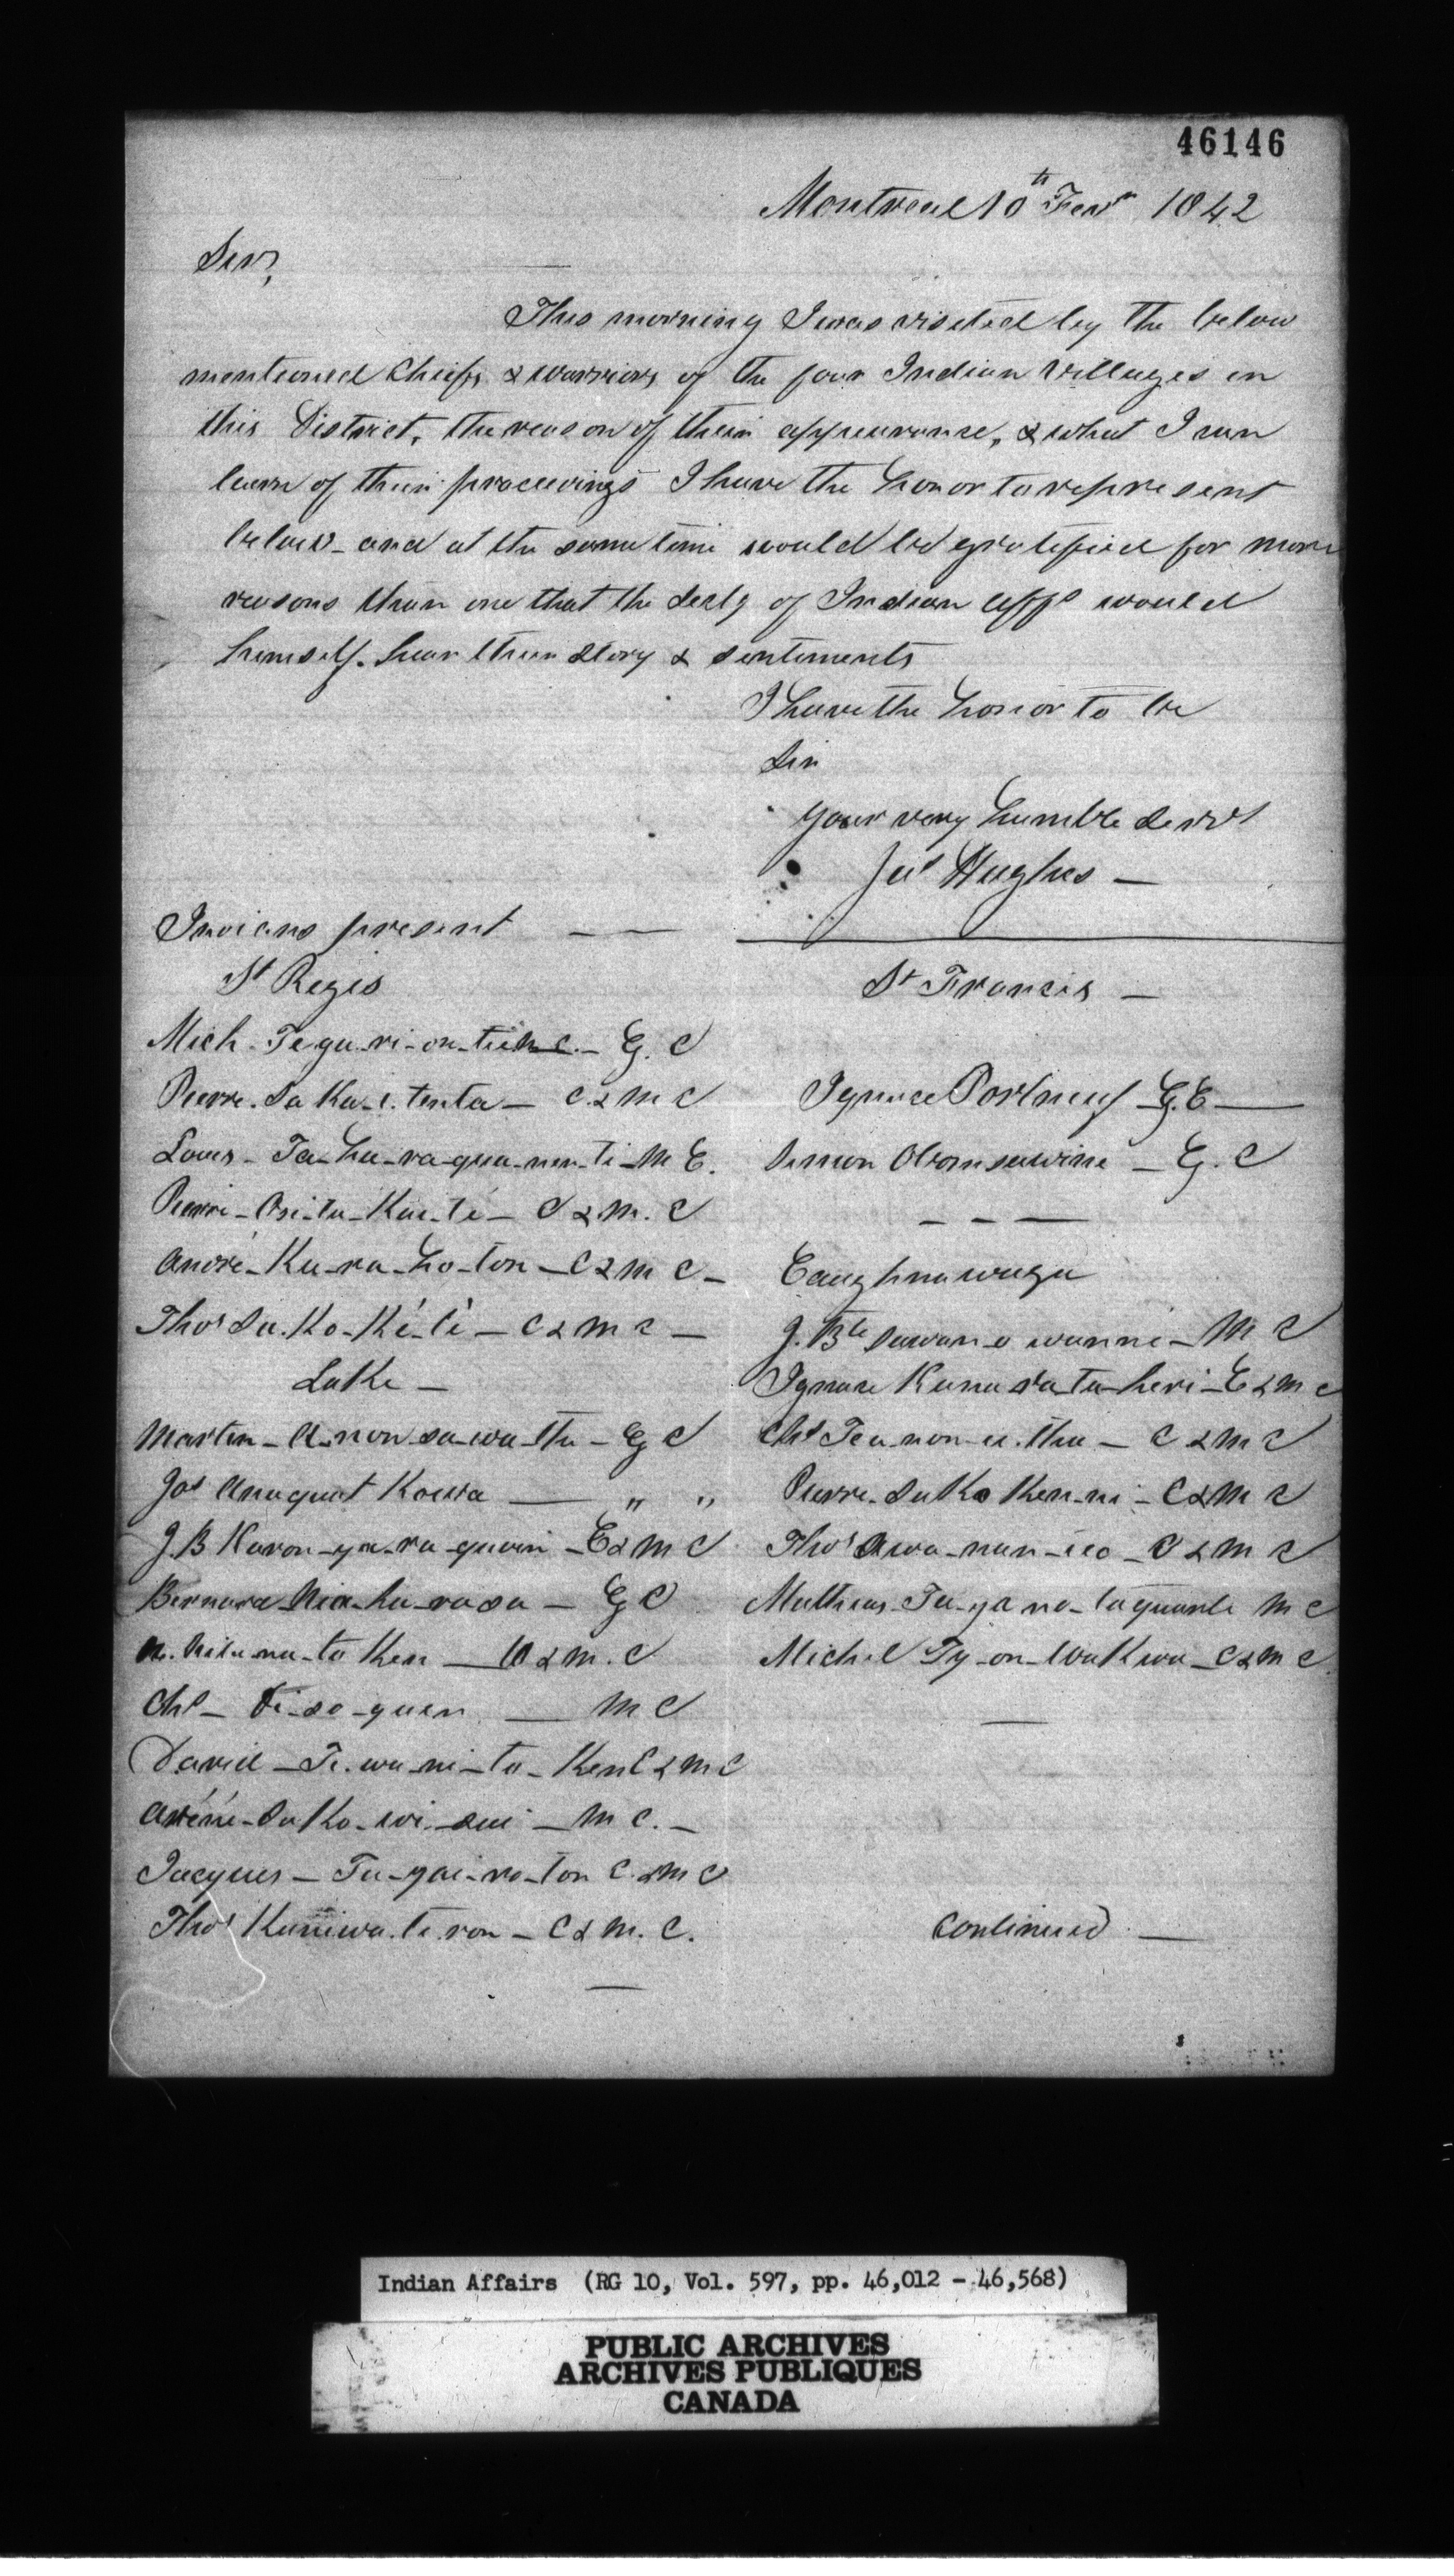 46146
Montreal 10th Feby 1842
Sir,
This morning I was visited by the below
mentioned Chiefs & warriors of the four Indian Villages in
this District, the reason of their appearance, & what I can
learn of their proceedings I have the honor to represent
below - and at the same time would be gratified for more
reasons than one that the Secty of Indian Affs would
himself hear their story & sentiments
I have the honor to be
Sir
your very humble Servt
Jas Hughes —
Indians present — —
St Regis
Mich - Te ga-ri-on-tie - G. C
Pierre - Sa Ka-i. tenta - C. & M C
Louis - Ta-ha-ra-qua-nen-te - M C.
Pierre - Osi-ta-Kai-té - C & M. C
André - Ka-ra-ho-ton - C & M C -
Thos Sa-Ko-Ké-té - C & M C -
Lake -
Martin - A-non-sa-wa-tha - G C
Jos Anaquat Kowa — " "
J. B Karon-ya-ra-quein - C & M C
Bernard Nia-ha-rasa - G C
to Ken - C & M. C
Chs - Ti-so-quen — M C
David - Te. wa-ni-to-Ken C & M C
Sa Ko-wi-sai - M C. -
Jacques - Ta-gai-ro-ton C. & M C
Thos Kaniwa. te. ron - C & M. C.
St Francis -
Ignace Portneuf - G. C —
Simon Obomsawine - G. C
- - —
Caughnawaga
J. Bte Sawan-o wanne - M C
Ignace Kana ra-ta-heri - C & M C
Chs Tea-non-a. tha - C & M C
Pierre - Sa Ko Ken-ni - C & M C
Thos Awa-nan-ieo - C & M C
Mathias - Ta-ga no-taquante M C
Michel Ty-on-Wa Kwa - C & M C
continued —
Indian Affairs (RG 10, Vol. 597, pp. 46,012 - 46,568)
PUBLIC ARCHIVES
ARCHIVES PUBLIQUES
CANADA